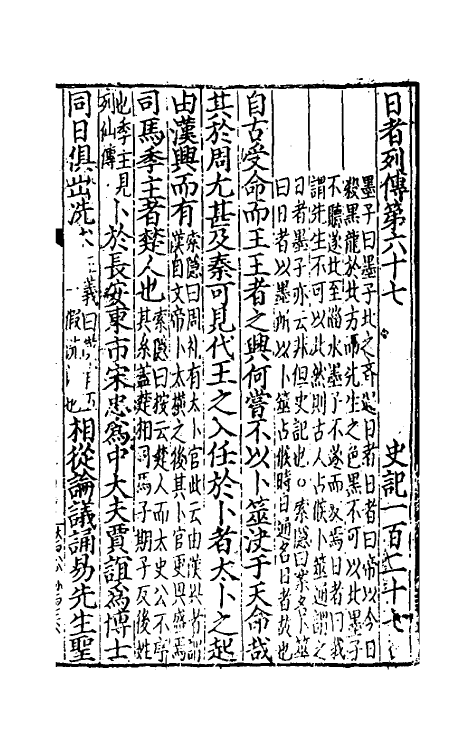 日者列傳第六十七 史記一百二十七
墨子曰墨子北之齊過日者日者曰帝以今日
殺黑龍於北方而先生之色黑不可以北墨子
不聽遂北至淄水墨子不遂而反焉日者曰我
謂先生不可以北然則古人占候卜筮通謂之
日者墨子亦云非但史記也。索隱曰案名卜筮
曰日者以墨所以卜筮占候時日通名日者故也
自古受命而王王者之興何嘗不以卜筮決于天命哉
其於周尤甚及秦可見代王之入任於卜者太卜之起
由漢興而有
索隱曰周礼有太卜官此云由漢興者謂
漢自文帝卜大橫之後其卜官更興盛焉
司馬季主者楚人也
索隱曰按云楚人而太史公不序
其系蓋楚相司馬子期子反後姓
也季主見
列仙傳
卜於長安東市宋忠爲中大夫賈誼爲博士
同日俱出洗
義曰
假洗 也
相從論議誦易先生聖